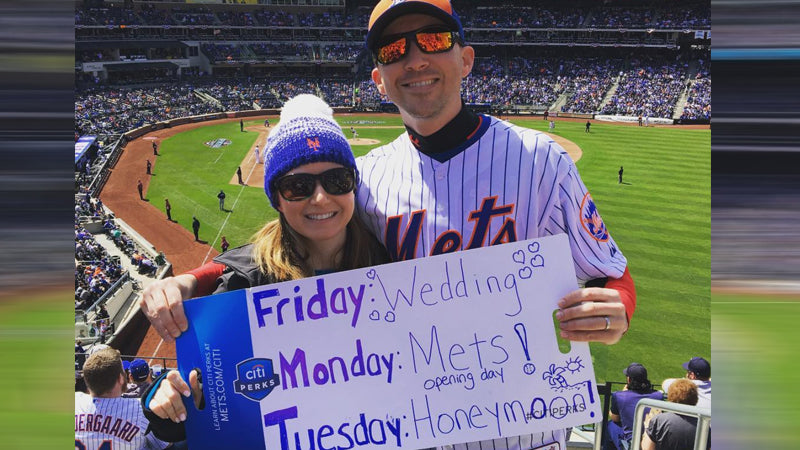 NY
Mets
Mets
Friday: Wedding
Monday: Mets!
opening day
Tuesday: Honeymoon!
#CITIPERKS
LEARN ABOUT CITI PERKS AT
METS.COM/CITI
citi
PERKS
DERGAARD